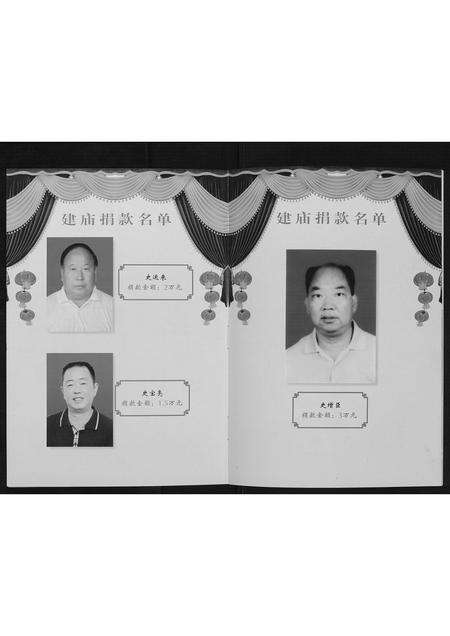 建庙捐款名单
史运来
捐款金额：2万元
史宝亮
捐款金额：1.5万元
建庙捐款名单
史增益
捐款金额：3万元